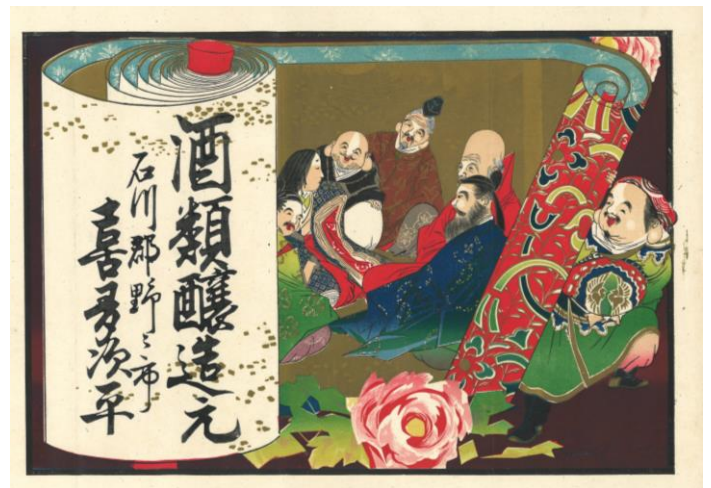 酒類醸造元
石川郡野々市
喜多次平